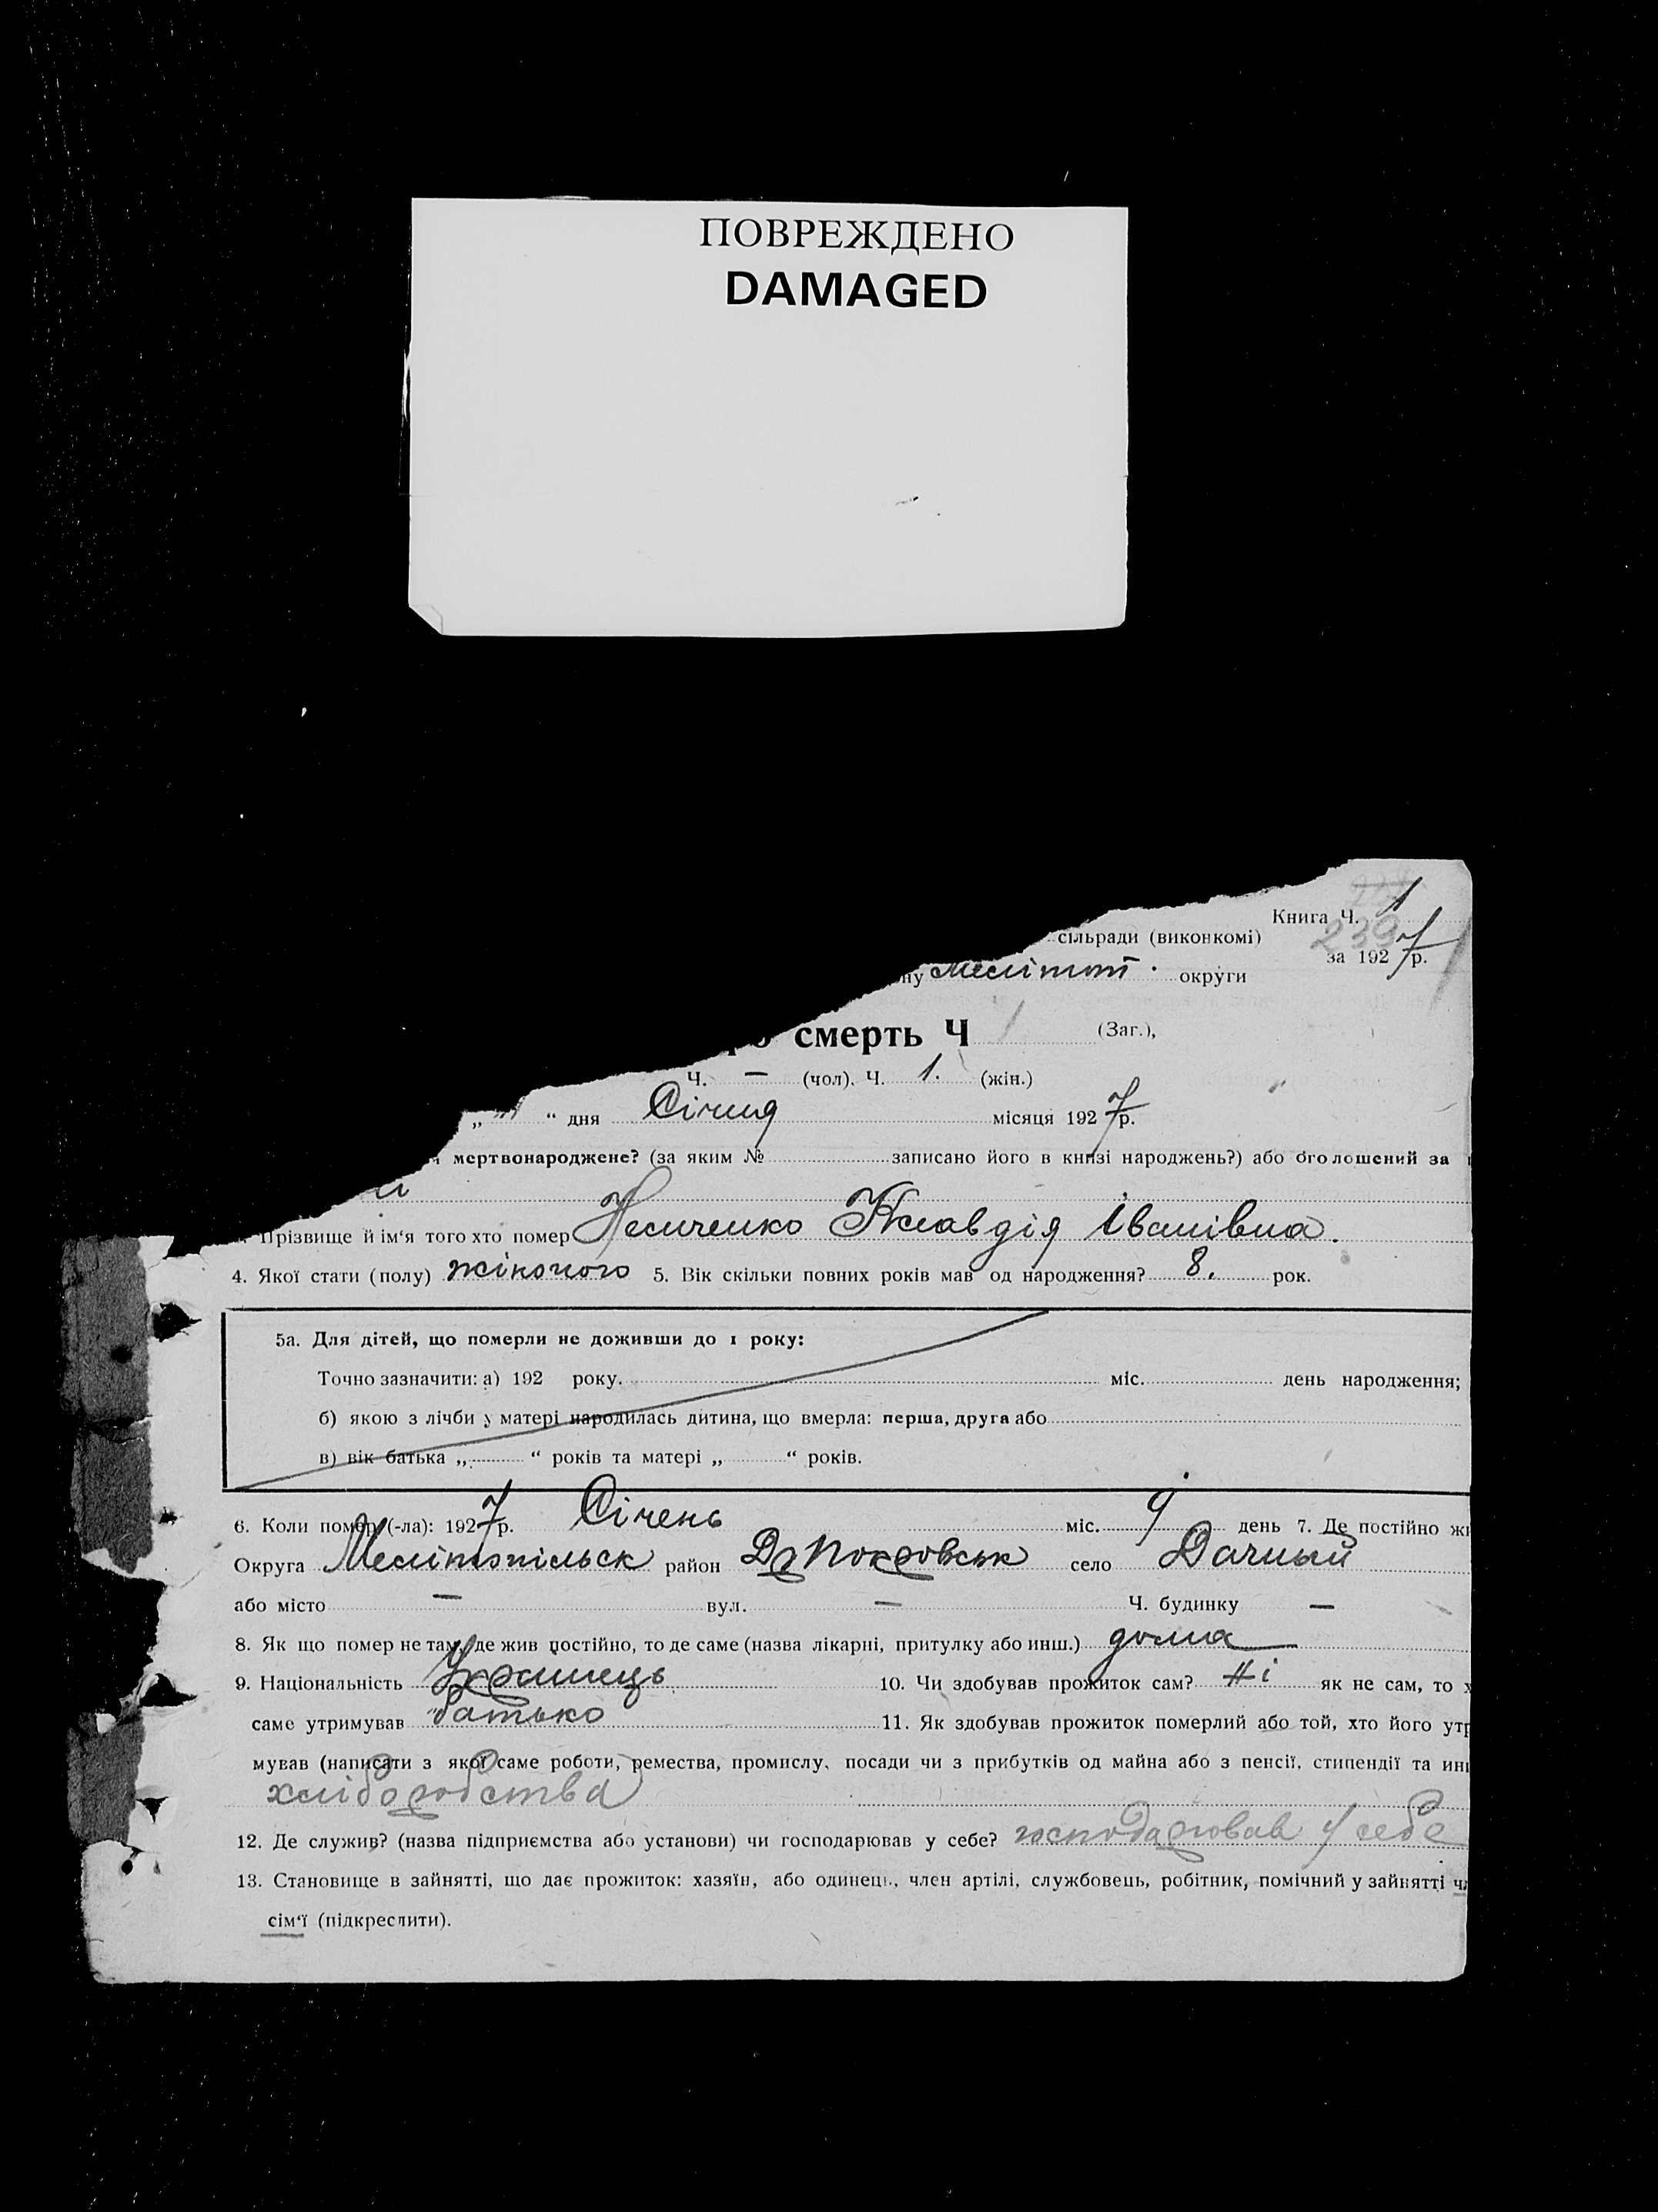 ПОВРЕЖДЕНО
DAMAGED
Книга Ч. 1
239
сільради (виконкомі)
за 1927 р.
ну Меліноп. округи
смерть Ч 1 (Заг.),
Ч. — (чол). Ч. 1. (жін.)
„ “ дня Січня місяця 1927 р.
мертвонароджене? (за яким № записано його в книзі народжень?) або оголошений за
Прізвище й ім‘я того хто помер Несиченко Клавдія Іванівна.
4. Якої стати (полу) жіночого 5. Вік скільки повних років мав од народження? 8. рок.
5а. Для дітей, що померли не доживши до 1 року:
Точно зазначити: а) 192 року. міс. день народження;
б) якою з лічби у матері народилась дитина, що вмерла: перша, друга або
в) вік батька „ “ років та матері „ “ років.
6. Коли помер (-ла): 1927 р. Січень міс. 9 день 7. Де постійно жи
Округа Мелітопільськ район Др Покровськ село Дачный
або місто — вул. — Ч. будинку —
8. Як що помер не там, де жив постійно, то де саме (назва лікарні, притулку або инш.) дома
9. Національність Українець 10. Чи здобував прожиток сам? Ні як не сам, то х
саме утримував батько 11. Як здобував прожиток померлий або той, хто його утр
мував (написати з якої саме роботи, ремества, промислу, посади чи з прибутків од майна або з пенсії, стипендії та ин
хліборобства
12. Де служив? (назва підприємства або установи) чи господарював у себе? господарював у себе
13. Становище в зайнятті, що дає прожиток: хазяїн, або одинець, член артілі, службовець, робітник, помічний у зайнятті чл
сім‘ї (підкреслити).